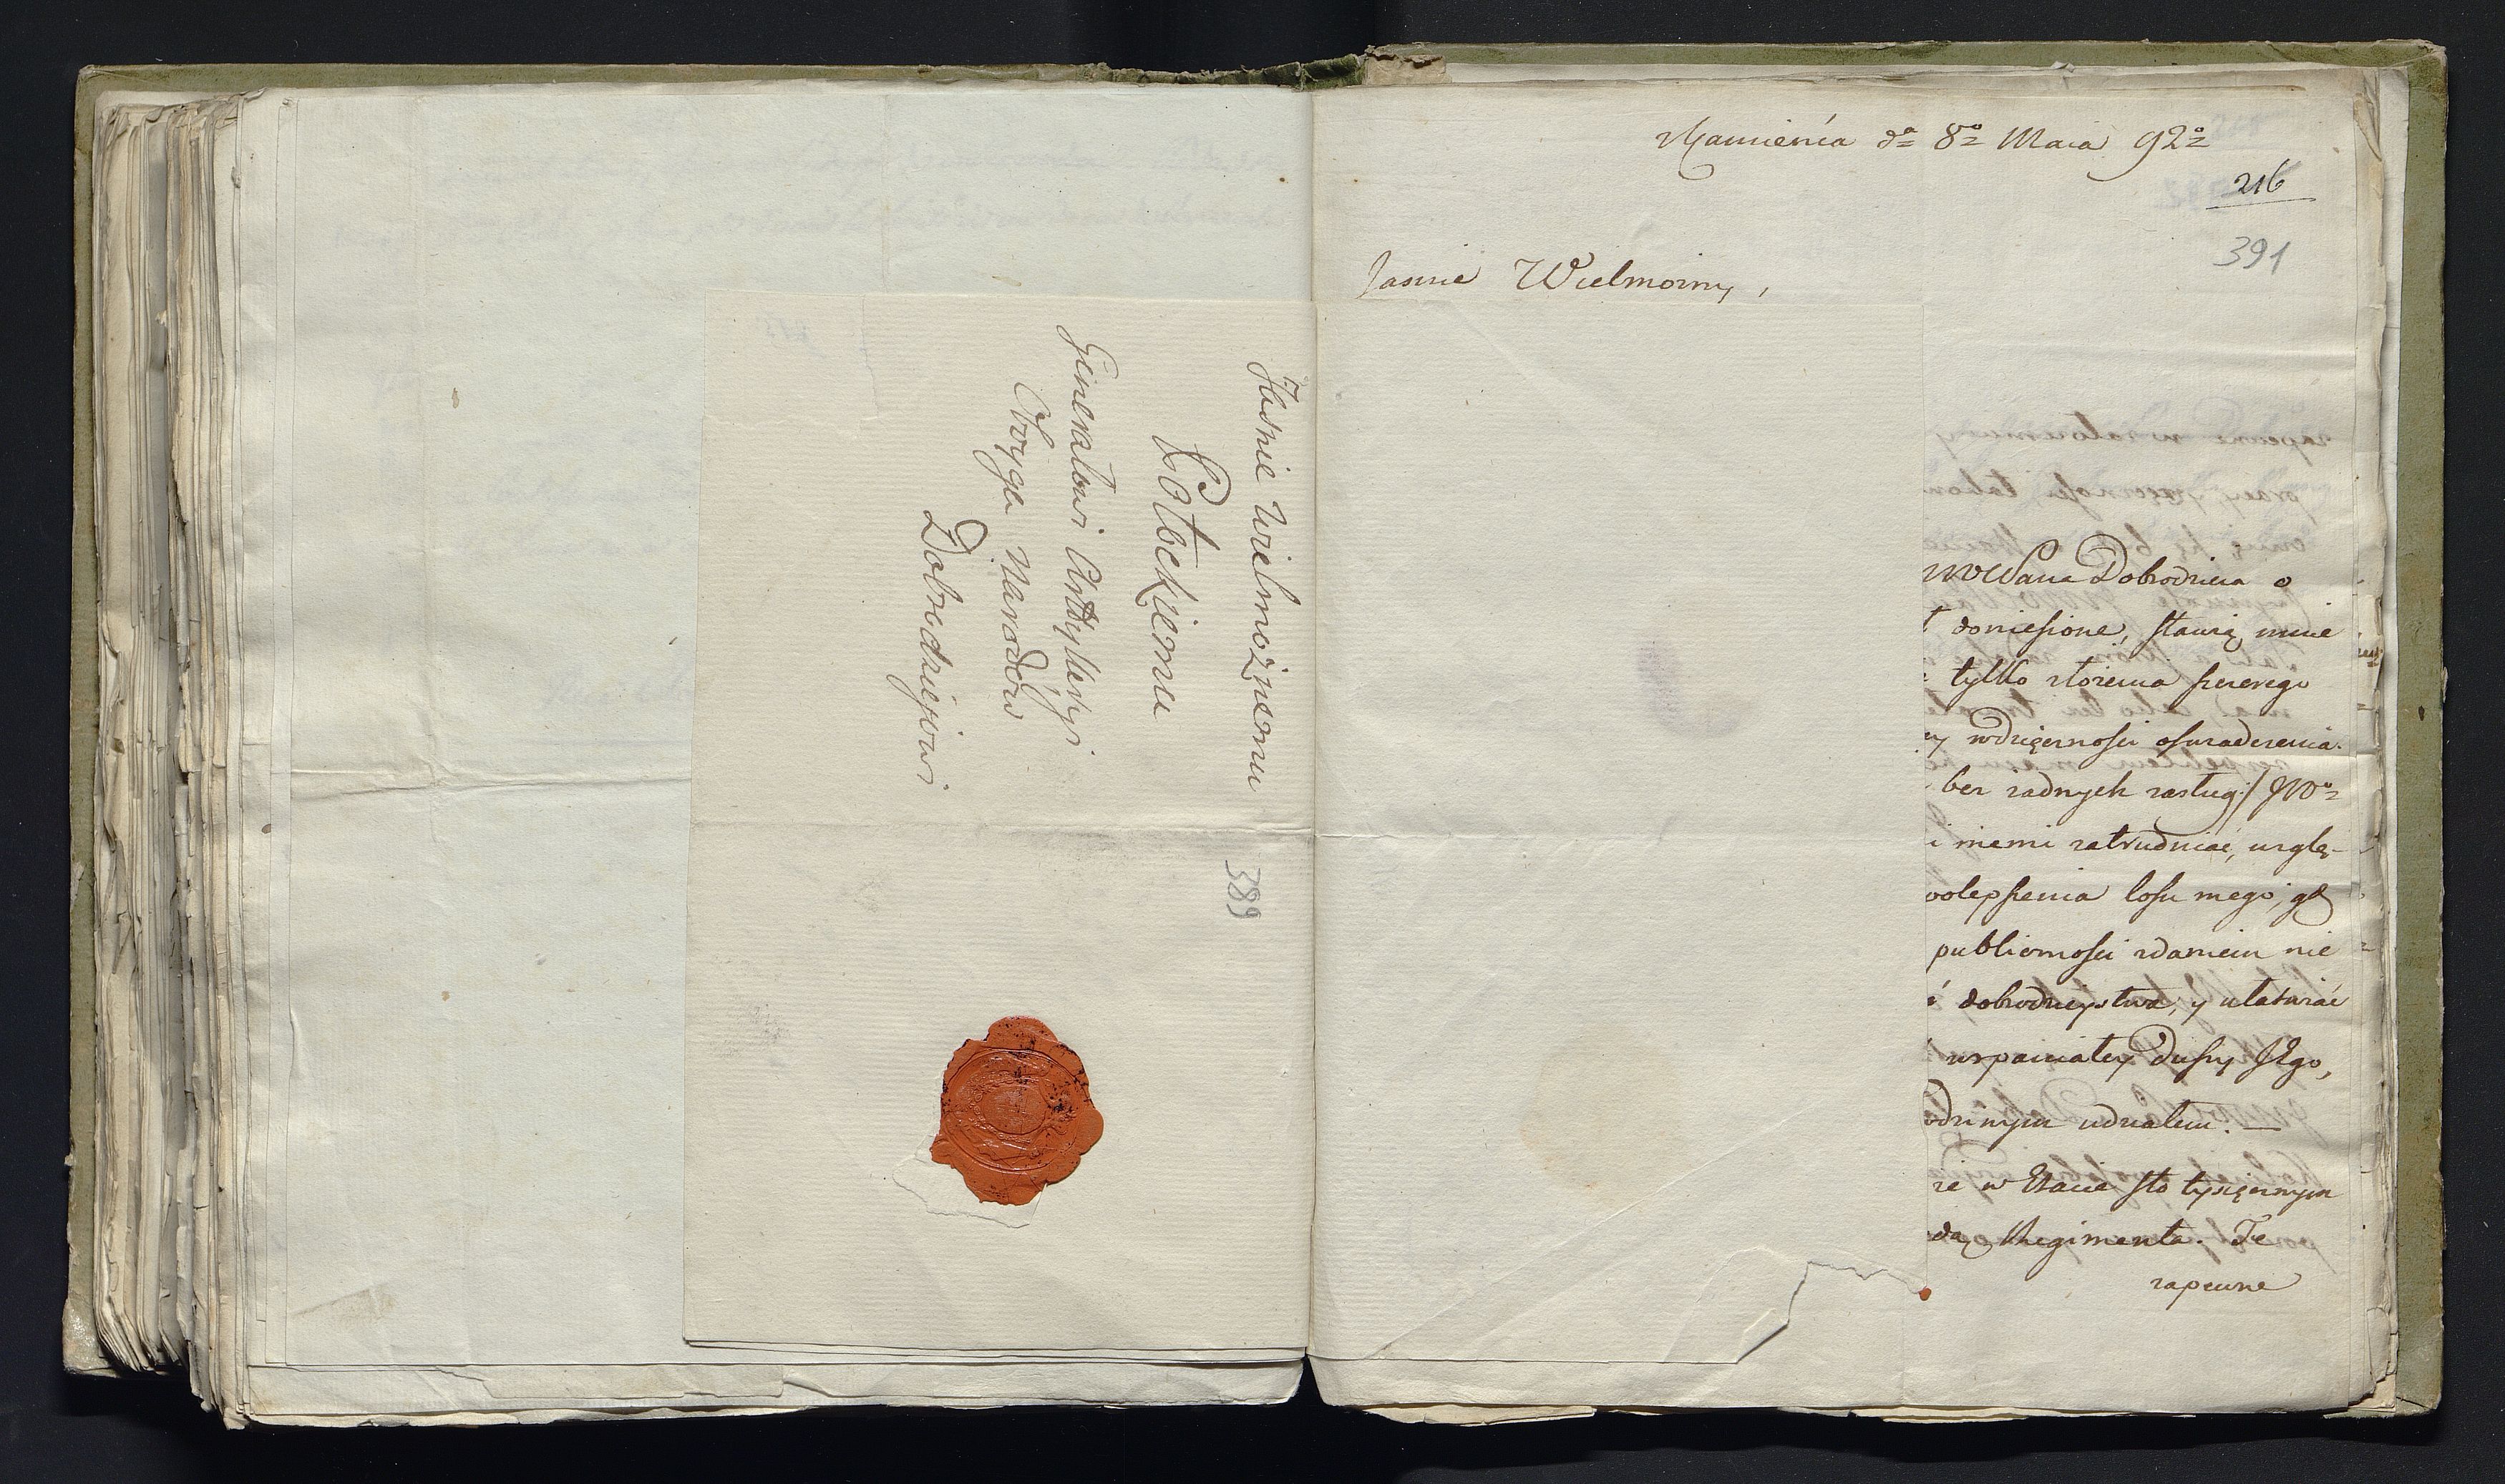 Jaśnie Wielmożnemu
Potockiemu
Generałowi Artylleryi
Oboyga Narodow
Dobrodziejowi
389
z Kamieńca da 8o Maia 92o
216
391
Jasnie Wielmozny,
JWWPana Dobrodzieia o
doniesione, stawią mnie
tylko złożenia szczerego
wdzięcznosci oswiadczenia.
bez żadnych zasług:/ JWo
i niemi zatrudniać, wzglę-
polepszenia losu mego, gdy
publicznosci zdaniem nie
dobrodzieystwa, y ułatwiać
wspaniałey Duszy JEgo,
udziałem. —
że w Stacie sto tysięcznym
Regimenta. Te
zapewne